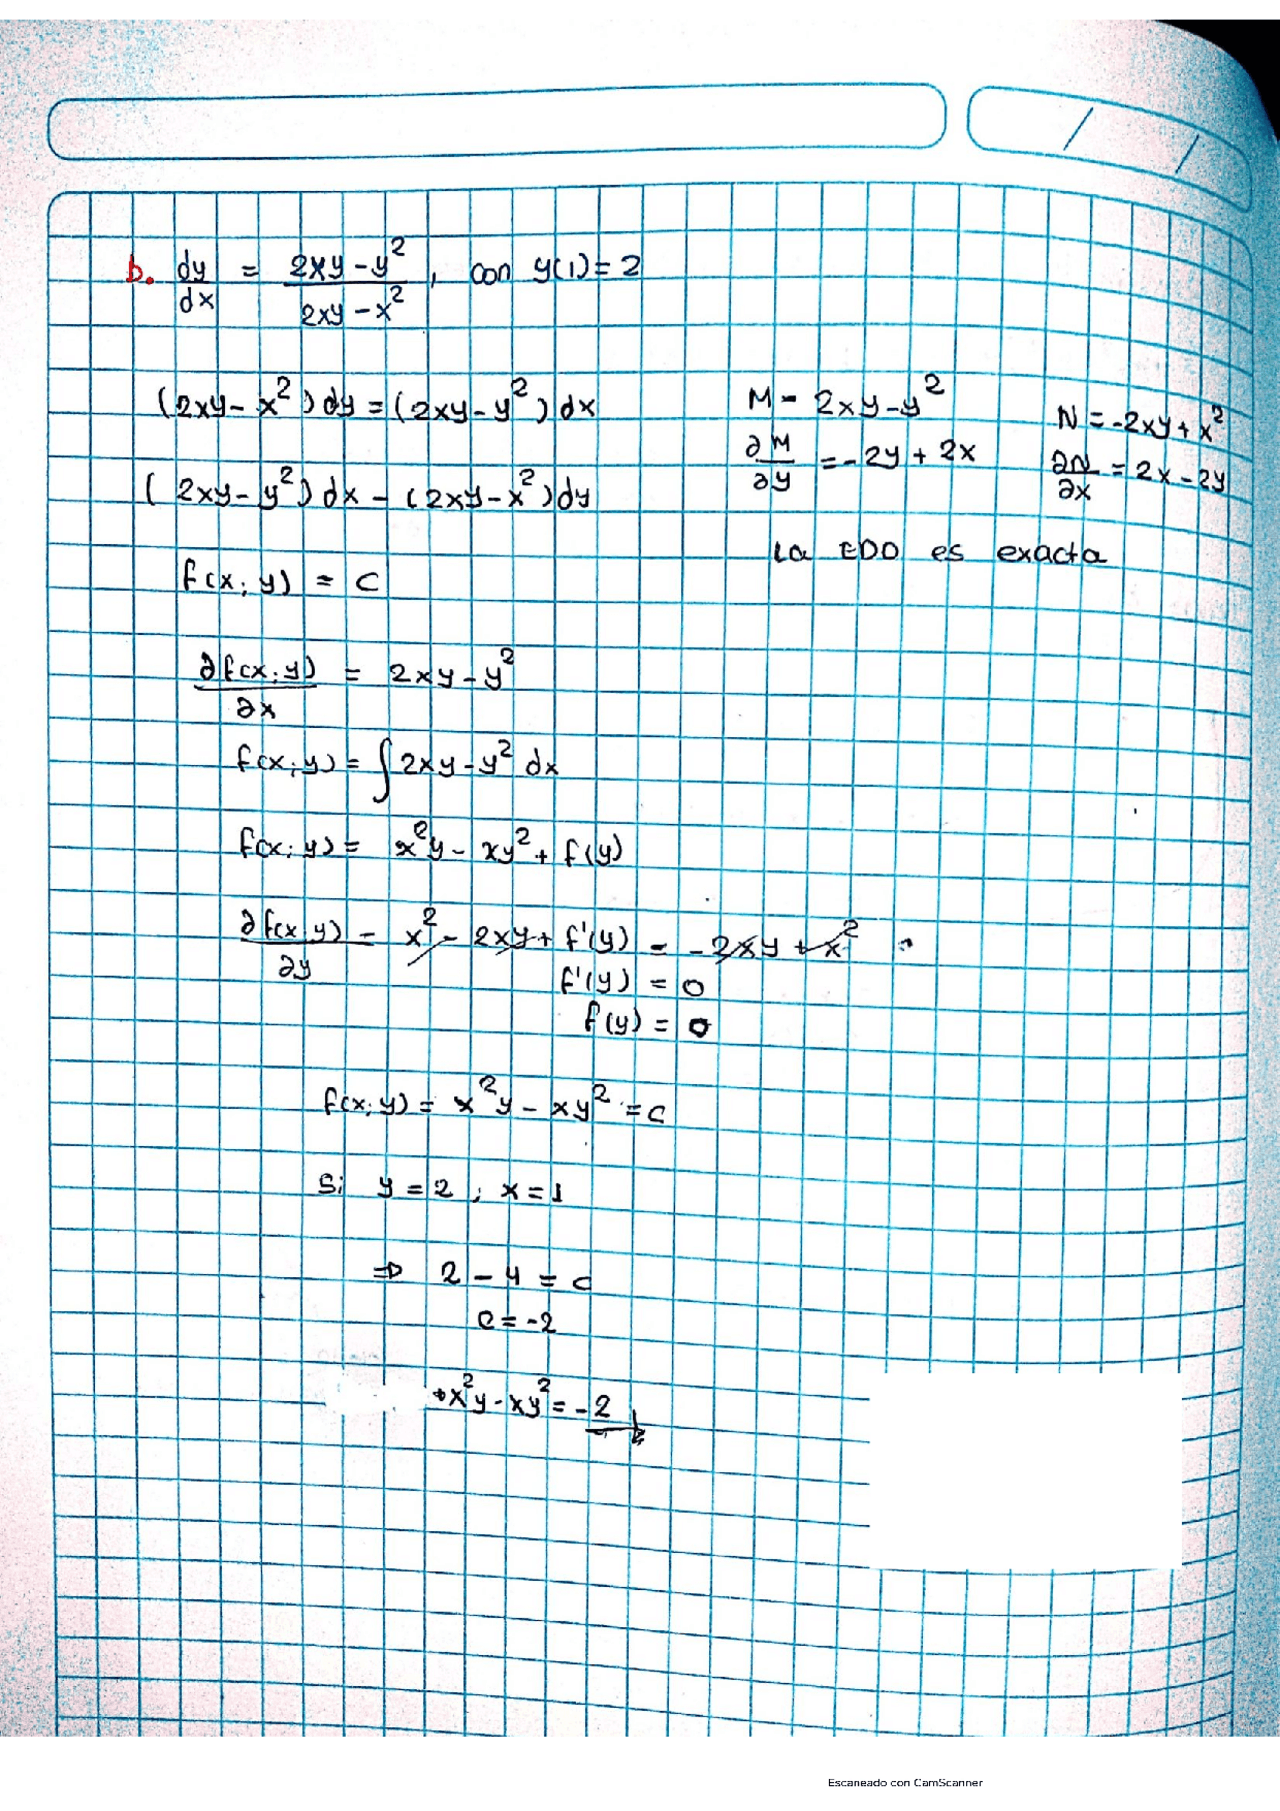 b. dy/dx = (2xy - y²)/(2xy - x²), con y(1) = 2
(2xy - x²) dy = (2xy - y²) dx
(2xy - y²) dx - (2xy - x²) dy
f(x; y) = c
M = 2xy - y²
∂M/∂y = -2y + 2x
N = -2xy + x²
∂N/∂x = 2x - 2y
La EDO es exacta
∂f(x; y)/∂x = 2xy - y²
f(x; y) = ∫ 2xy - y² dx
f(x; y) = x²y - xy² + f(y)
∂f(x; y)/∂y = x² - 2xy + f'(y) = -2xy + x²
f'(y) = 0
f(y) = 0
f(x; y) = x²y - xy² = c
Si y = 2 ; x = 1
⇒ 2 - 4 = c
c = -2
+x²y - xy² = -2
Escaneado con CamScanner